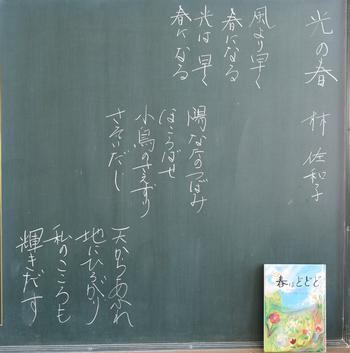 光の春 林 佐和子
風より早く
春になる
光は早く
春になる
陽なたのつぼみ
ほころばせ
小鳥のさえずり
さそいだし
天からあふれ
地にひろがり
私のこころも
輝きだす
春はどどど